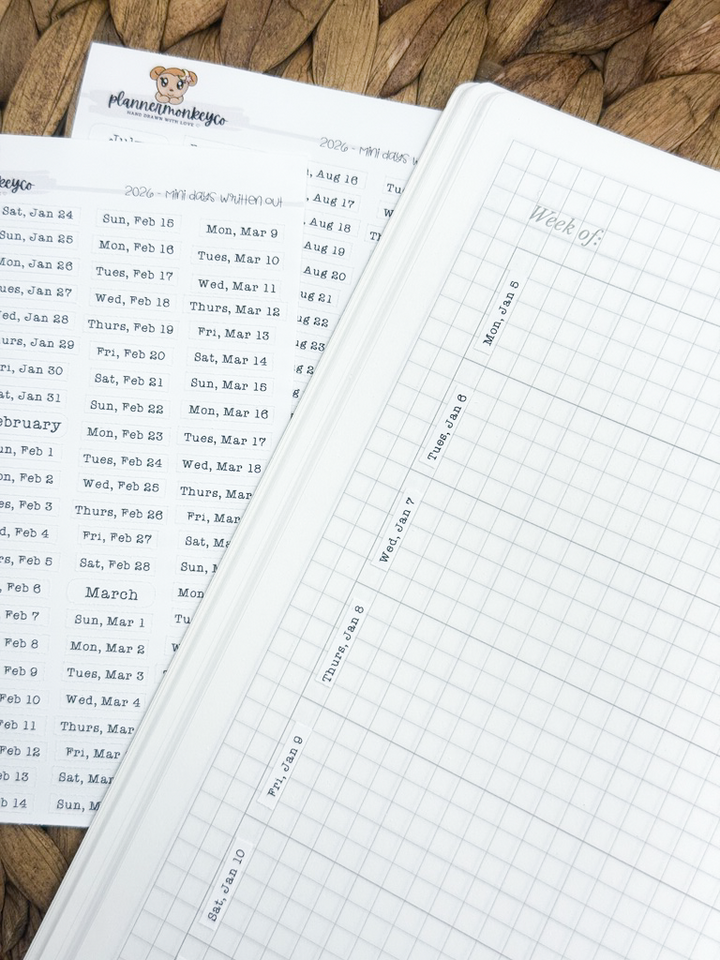 plannermonkeyco
HAND DRAWN WITH LOVE
2026 - mini days w
Aug 16
Aug 17
Aug 18
Aug 19
Aug 20
ug 21
ug 22
ug 23
Tu
W
Th
keyco
2026 - mini days written out
Sat, Jan 24
Sun, Jan 25
Mon, Jan 26
ues, Jan 27
ed, Jan 28
urs, Jan 29
ri, Jan 30
at, Jan 31
ebruary
un, Feb 1
on, Feb 2
es, Feb 3
d, Feb 4
rs, Feb 5
Feb 6
Feb 7
Feb 8
Feb 9
Feb 10
Feb 11
Feb 12
eb 13
b 14
Sun, Feb 15
Mon, Feb 16
Tues, Feb 17
Wed, Feb 18
Thurs, Feb 19
Fri, Feb 20
Sat, Feb 21
Sun, Feb 22
Mon, Feb 23
Tues, Feb 24
Wed, Feb 25
Thurs, Feb 26
Fri, Feb 27
Sat, Feb 28
March
Sun, Mar 1
Mon, Mar 2
Tues, Mar 3
Wed, Mar 4
Thurs, Mar
Fri, Mar
Sat, Mar
Sun, M
Mon, Mar 9
Tues, Mar 10
Wed, Mar 11
Thurs, Mar 12
Fri, Mar 13
Sat, Mar 14
Sun, Mar 15
Mon, Mar 16
Tues, Mar 17
Wed, Mar 18
Thurs, Mar
Fri, Mar
Sat, Ma
Sun, M
Mon
Tu
W
Week of:
Mon, Jan 5
Tues, Jan 6
Wed, Jan 7
Thurs, Jan 8
Fri, Jan 9
Sat, Jan 10